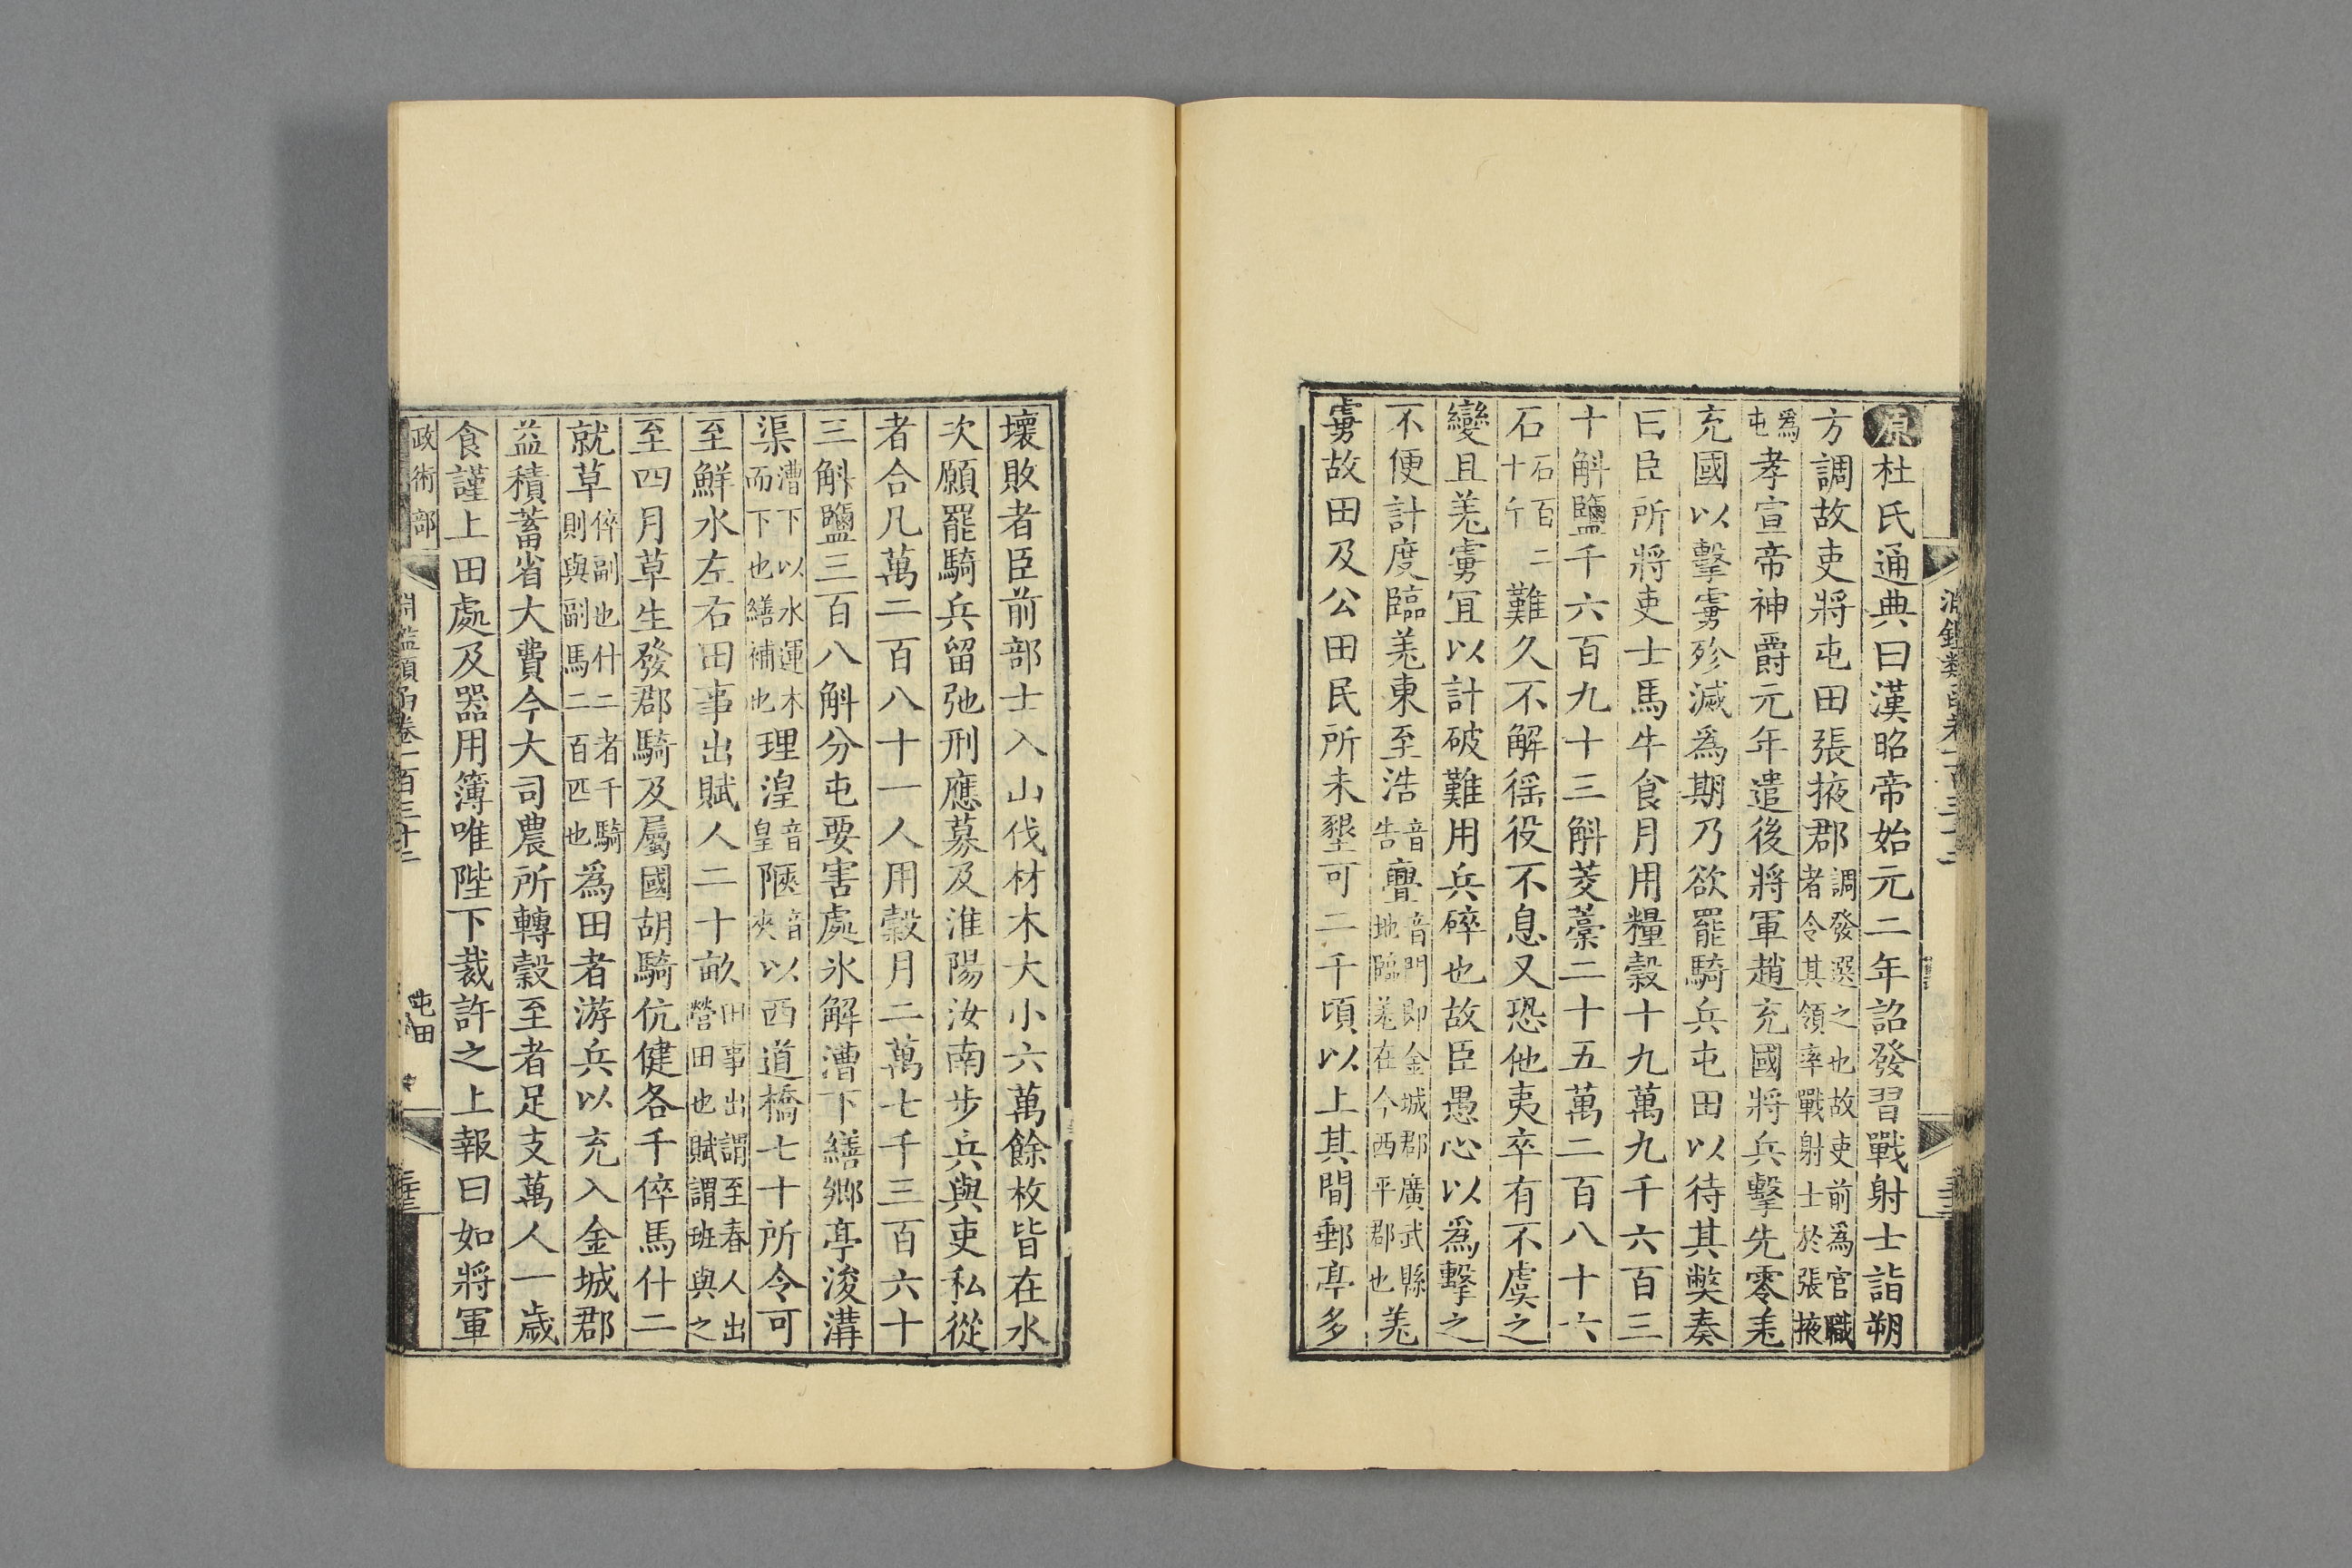 原杜氏通典曰漢昭帝始元二年詔發習戰射士詣朔
方調故吏將屯田張掖郡調發選之也故吏前爲官職者令其領率戰射士於張掖
爲屯孝宣帝神爵元年遣後將軍趙充國將兵擊先零羌
充國以擊虜殄滅爲期乃欲罷騎兵屯田以待其獘奏
曰臣所將吏士馬牛食月用糧穀十九萬九千六百三
十斛鹽千六百九十三斛茭藁二十五萬二百八十六
石石百二十斤難久不解徭役不息又恐他夷卒有不虞之
變且羌虜冝以計破難用兵碎也故臣愚心以爲擊之
不便計度臨羌東至浩音告亹音門即金城郡廣武縣地臨羌在今西平郡也羌
虜故田及公田民所未墾可二千頃以上其間郵亭多
壞敗者臣前部士入山伐材木大小六萬餘枚皆在水
次願罷騎兵留弛刑應募及淮陽汝南步兵與吏私從
者合凡萬二百八十一人用穀月二萬七千三百六十
三斛鹽三百八斛分屯要害處氷解漕下繕鄉亭浚溝
渠漕下以水運木而下也繕補也理湟音皇陿音夾以西道橋七十所令可
至鮮水左右田事出賦人二十畝田事出謂至春人出營田也賦謂班與之
至四月草生發郡騎及屬國胡騎伉健各千倅馬什二
就草倅副也什二者千騎則與副馬二百匹也爲田者游兵以充入金城郡
益積蓄省大費今大司農所轉穀至者足支萬人一歲
食謹上田處及器用簿唯陛下裁許之上報曰如將軍
政術部
淵鑑類函卷一百三十二
屯田